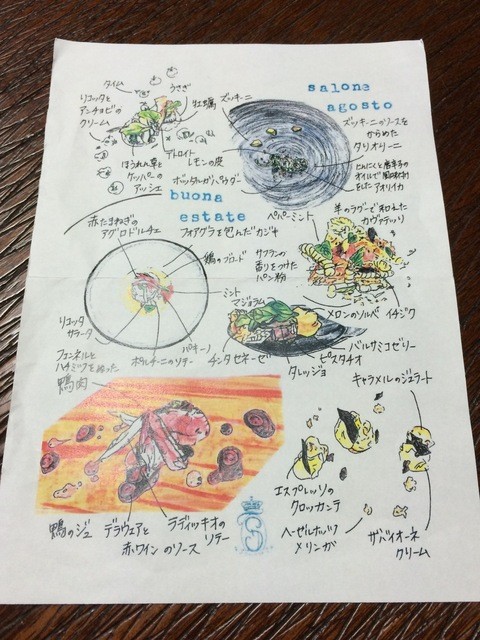 タイム
うさぎ
リコッタと
アンチョビの
クリーム
牡蠣
ズッキーニ
salone
agosto
ズッキーニのソースを
からめた
タリオリーニ
デトロイト
レモンの皮
ほうれん草と
ケッパーの
アッシェ
ボッタルガパウダー
にんにくと唐辛子の
オイルで風味付け
をしたアオリイカ
buona
estate
赤たまねぎの
アグロドルチェ
フォアグラを包んだカジキ
ペパーミント
羊のラグーで和えた
カヴァテッリ
鶏のブロード
サフランの
香りをつけた
パン粉
ミント
マジョラム
メロンのソルベ
イチジク
リコッタ
サラータ
パキーノ
ポルチーニのソテー
チンタセネーゼ
バルサミコゼリー
ピスタチオ
タレッジョ
フェンネルと
ハチミツをぬった
鴨肉
キャラメルのジェラート
エスプレッソの
クロッカンテ
鴨のジュ
デラウェアと
赤ワインのソース
ラディッキオの
ソテー
ヘーゼルナッツ
メリンガ
ザバイオーネ
クリーム